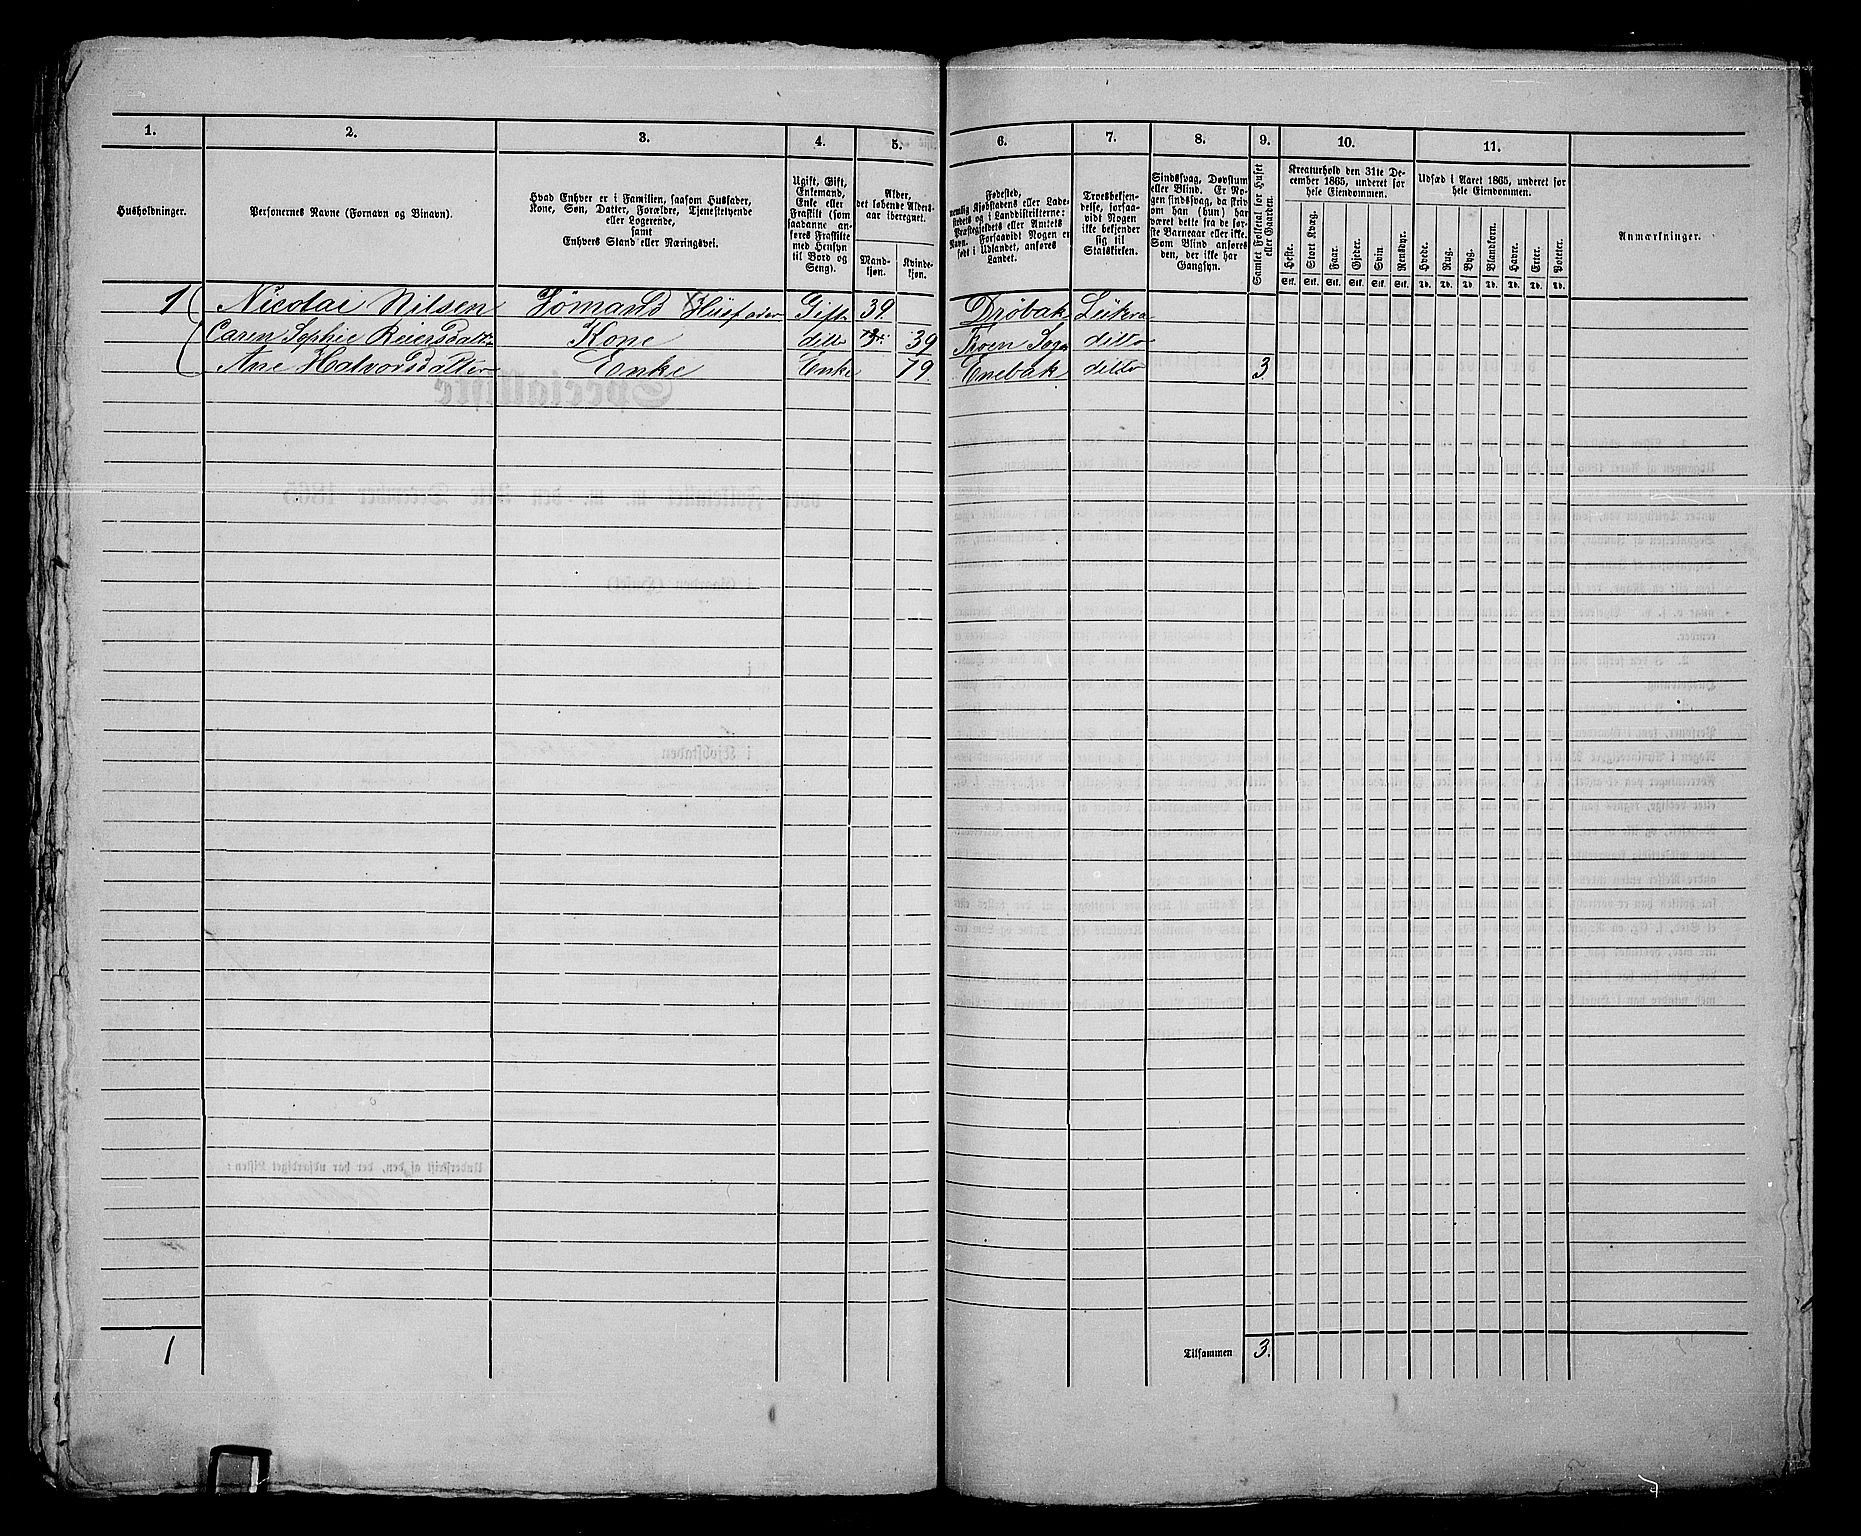 1. 2. 3. 4. 5. 6. 7. 8. 9. 10. 11.
Husholdninger.
Personernes Navne (Fornavn og Binavn).
Hvad Enhver er i Familien, saasom Husfader,
Kone, Søn, Datter, Forældre, Tjenestetyende
eller Logerende,
samt
Enhvers Stand eller Næringsvei.
Ugift, Gift,
Enkemand,
Enke eller
Fraskilt (som
saadanne an-
føres Fraskilte
med Hensyn
til Bord og
Seng).
Alder,
det løbende Alders-
aar iberegnet.
Mand-
kjøn.
Kvinde-
kjøn.
Fødested,
nemlig Kjøbstadens eller Lade-
stedets og i Landdistrikterne:
Præstegjeldets eller Amtets
Navn. Forsaavidt Nogen er
født i Udlandet, anføres
Landet.
Troesbekjen-
delse, forsaa-
vidt Nogen
ikke bekjender
sig til
Statskirken.
Sindssvag, Døvstum
eller Blind. Er No-
gen sindssvag, da skriv
om han (hun) har
været dette fra de før-
ste Barneaar eller ikke.
Som Blind anføres
den, der ikke har
Gangsyn.
Samlet Folketal for Huset
eller Gaarden.
Kreaturhold den 31te De-
cember 1865, underet for
hele Eiendommen.
Heste. Stort Kvæg. Faar. Gjeder. Svin Rensdyr.
Stk. Stk. Stk. Stk. Stk. Stk.
Udsæd i Aaret 1865, underet for
hele Eiendommen.
Hvede. Rug. Byg. Blandkorn. Havre. Erter. Poteter.
Td. Td. Td. Td. Td. Td. Td.
Anmærkninger.
1 Nicolai Nilsen Sømand Husfader Gift 39. Drøbak
Caren Sophie Reiersdatt Kone ditto 39 ditto
Ane Halvorsdatter Enke Enke 79. Enebak ditto 3.
1 Tilsammen 3.